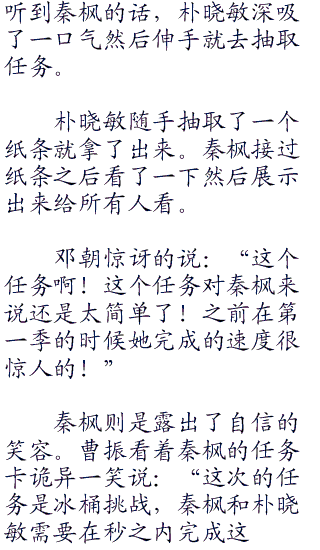 听到秦枫的话，朴晓敏深吸
了一口气然后伸手就去抽取
任务。
朴晓敏随手抽取了一个
纸条就拿了出来。秦枫接过
纸条之后看了一下然后展示
出来给所有人看。
邓朝惊讶的说：“这个
任务啊！这个任务对秦枫来
说还是太简单了！之前在第
一季的时候她完成的速度很
惊人的！”
秦枫则是露出了自信的
笑容。曹振看着秦枫的任务
卡诡异一笑说：“这次的任
务是冰桶挑战，秦枫和朴晓
敏需要在秒之内完成这